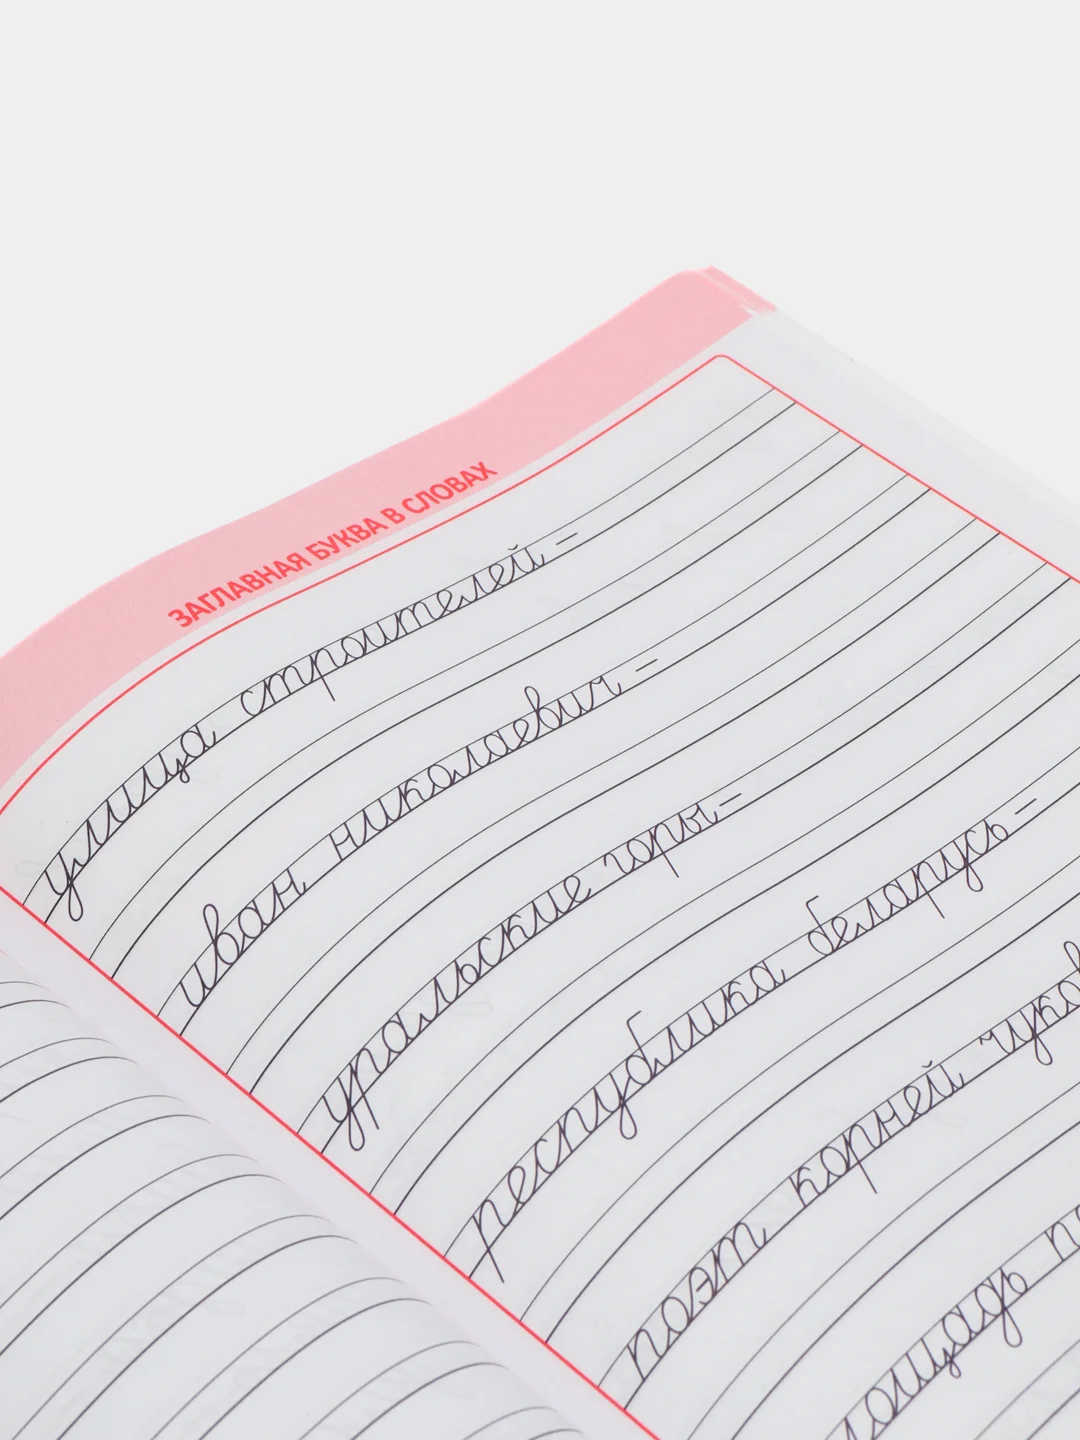 ЗАГЛАВНАЯ БУКВА В СЛОВАХ
улица строителей –
иван николаевич –
уральские горы –
республика беларусь –
поэт корней